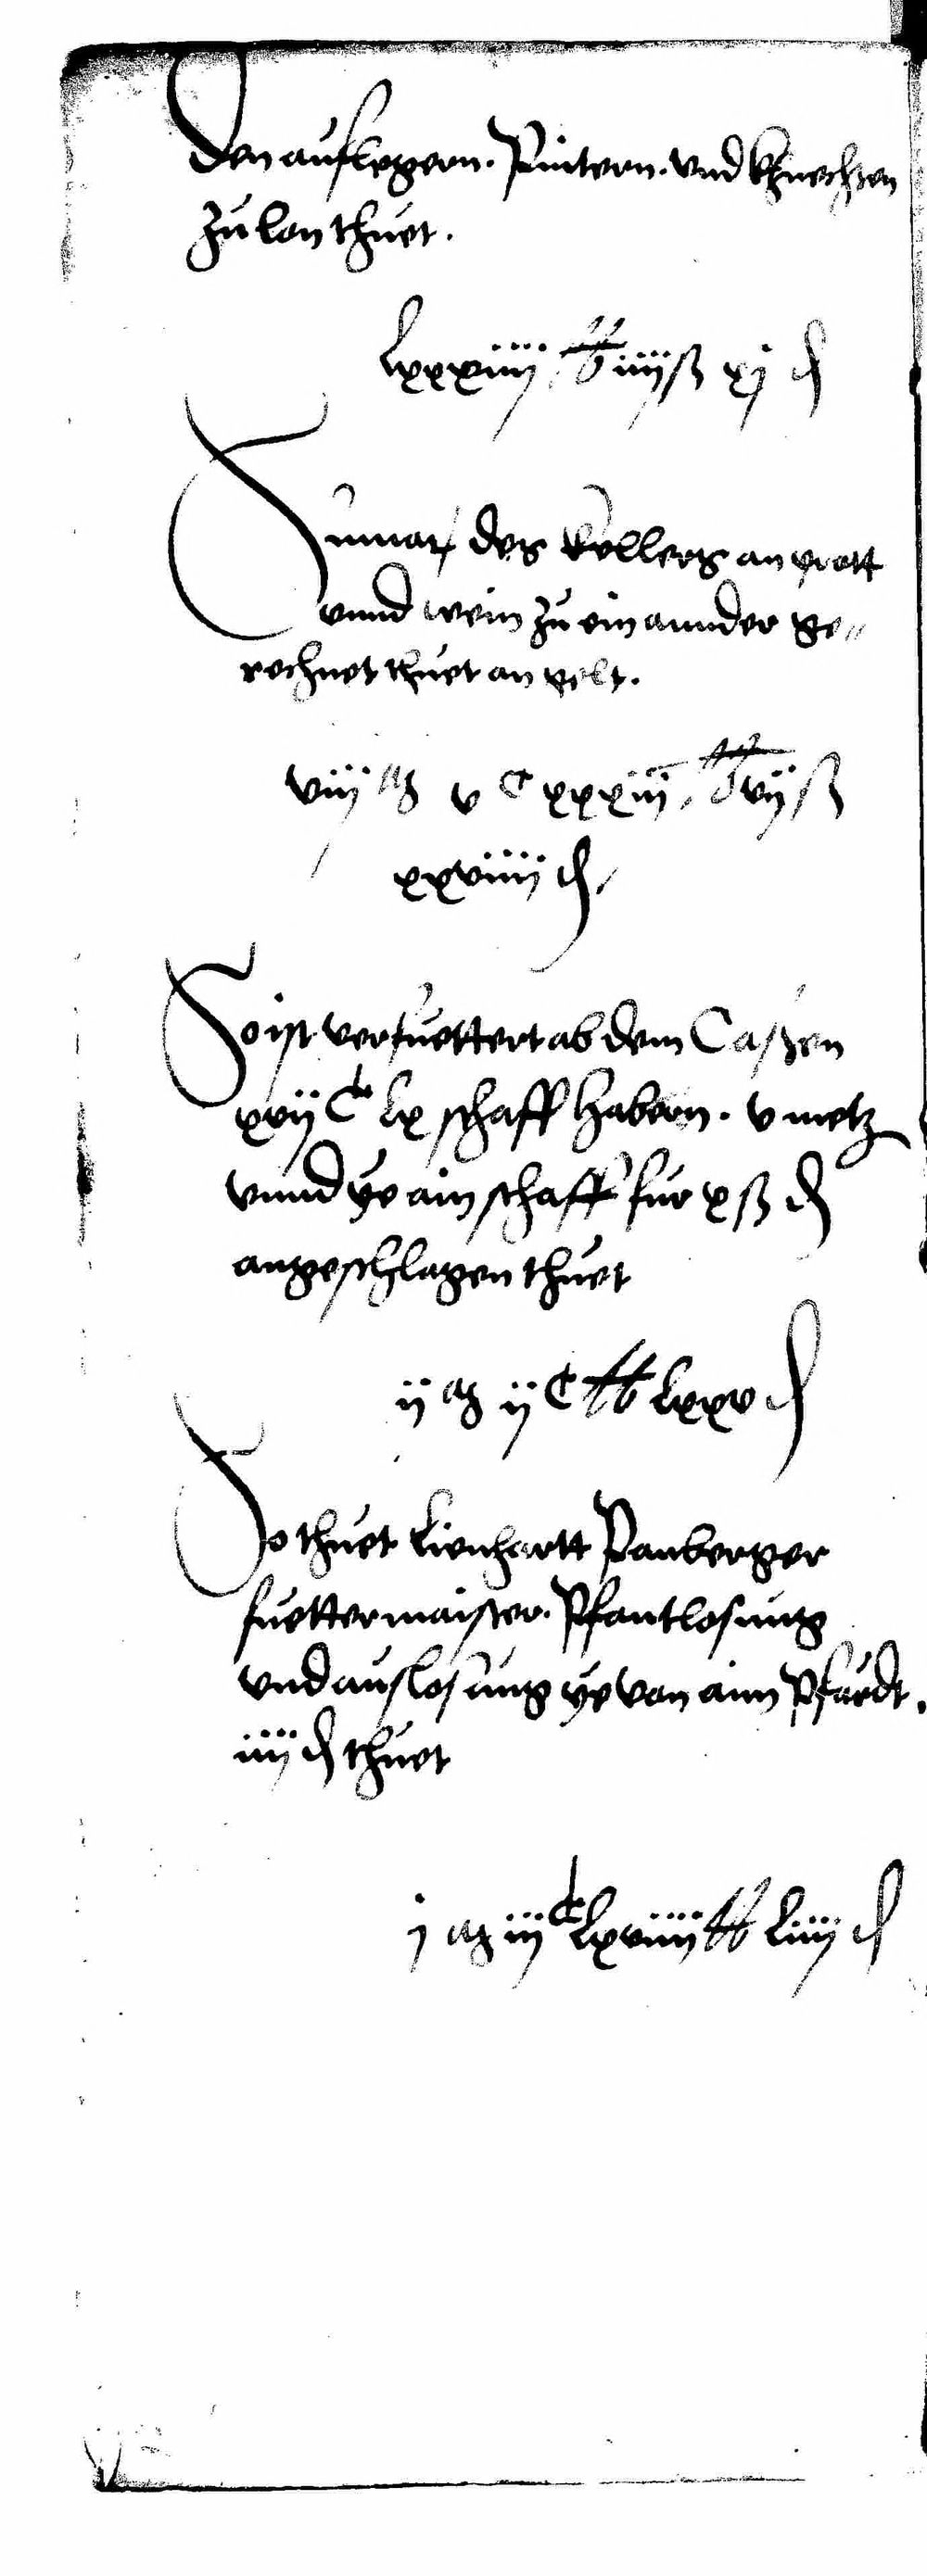 Den auflegern. Pintern. vnd khnechten
zu lon thuet.
lxxxiiij lb iiij ß xj d
Sumar des kellers an prott
vnnd wein zu ein annder ge„
rechnet thuet an gelt.
viij m v C xxxiij lb vij ß
xxviiij d
So ist verfuettert ab dem Casten
xvij C lx schaff habern. v metz
vnnd ye ain schaff fur x ß d
angeschlagen thuet
ij m ij C lb lxxv d
So thuet Lienhartt Panberger
fuettermaister. Pfantlosung
vnd auslosung ye von aim Pfärdt.
iiij d thuet
j m iij C lxviiij lb liiij d